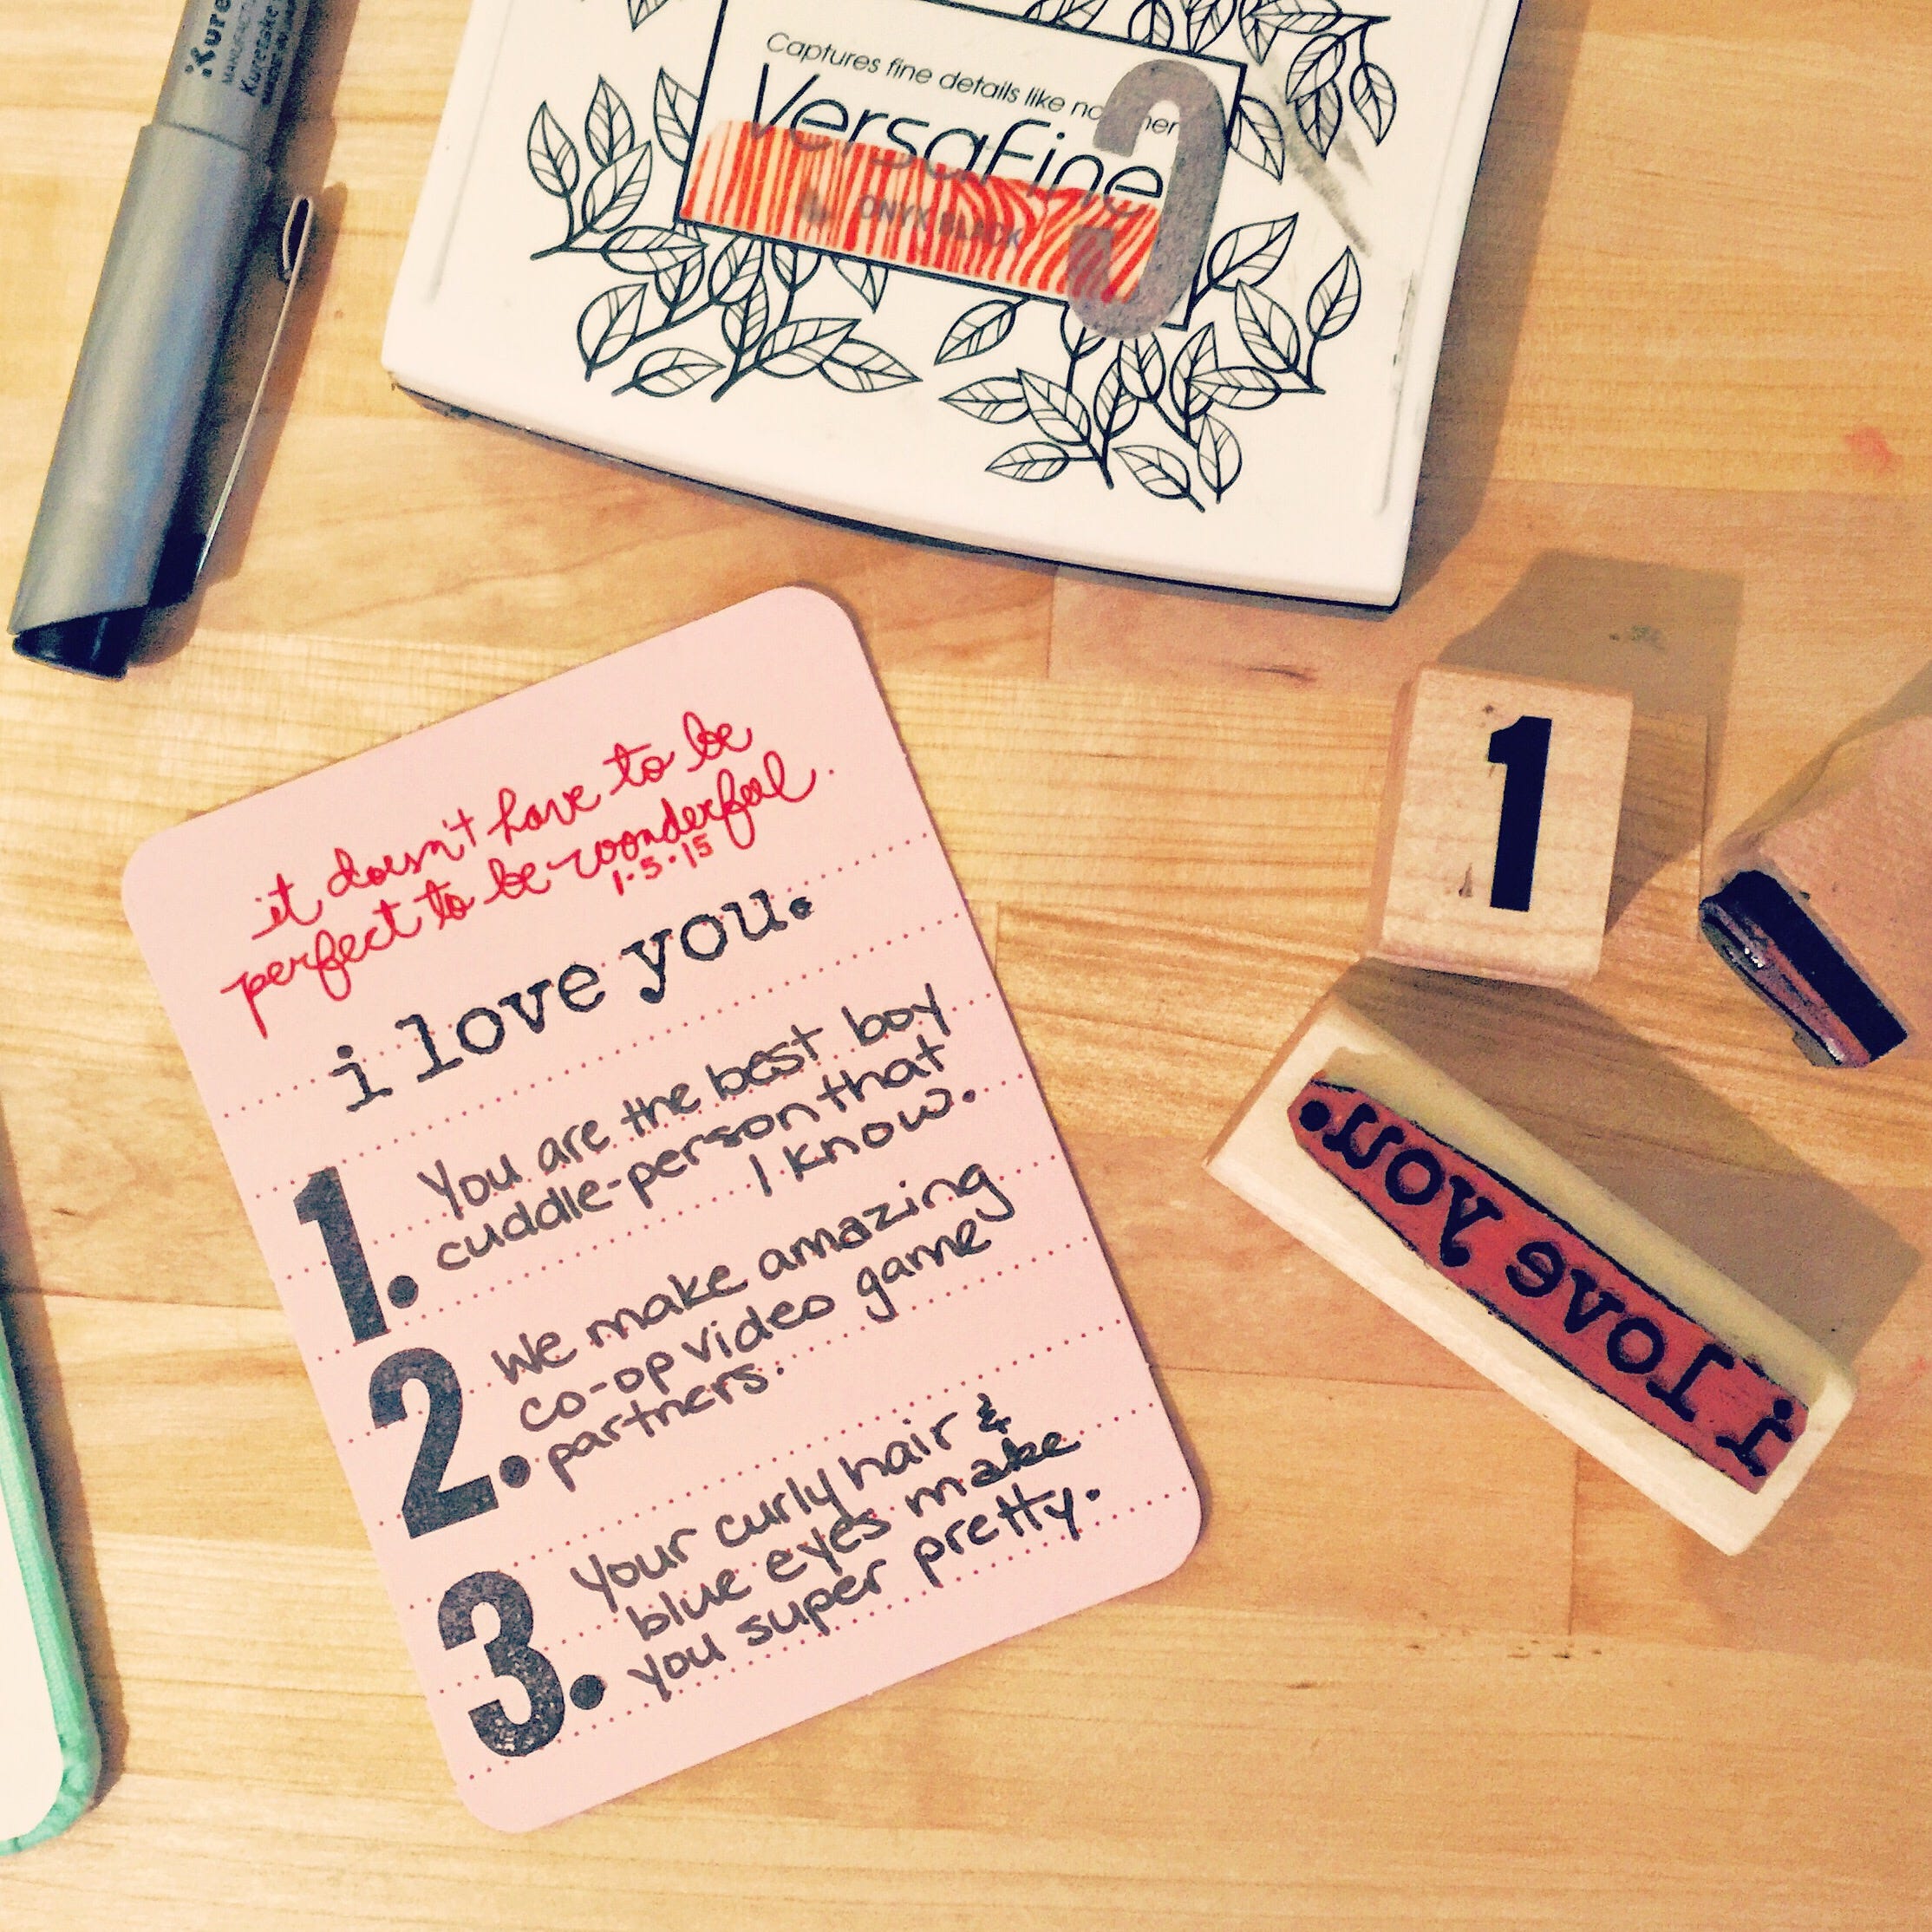 Kure
MANUFACTU
Kuretake
Captures fine details like no her
VersaFine
ONYX BLACK
it doesn't have to be
perfect to be wonderful.
1.5.15
i love you.
1. You are the best boy
cuddle-person that
I know.
2. We make amazing
co-op video game
partners.
3. Your curly hair &
blue eyes make
you super pretty.
1
i love you.